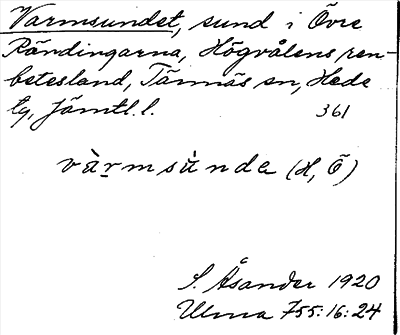 Varmsundet, sund i Övre
Rändingarna, Högvålens ren-
betesland, Tännäs sn, Hede
tg, Jämtl. l. 361
vàrmsùnda (H, Ö)
S. Åsander 1920
Ulma 755:16:24